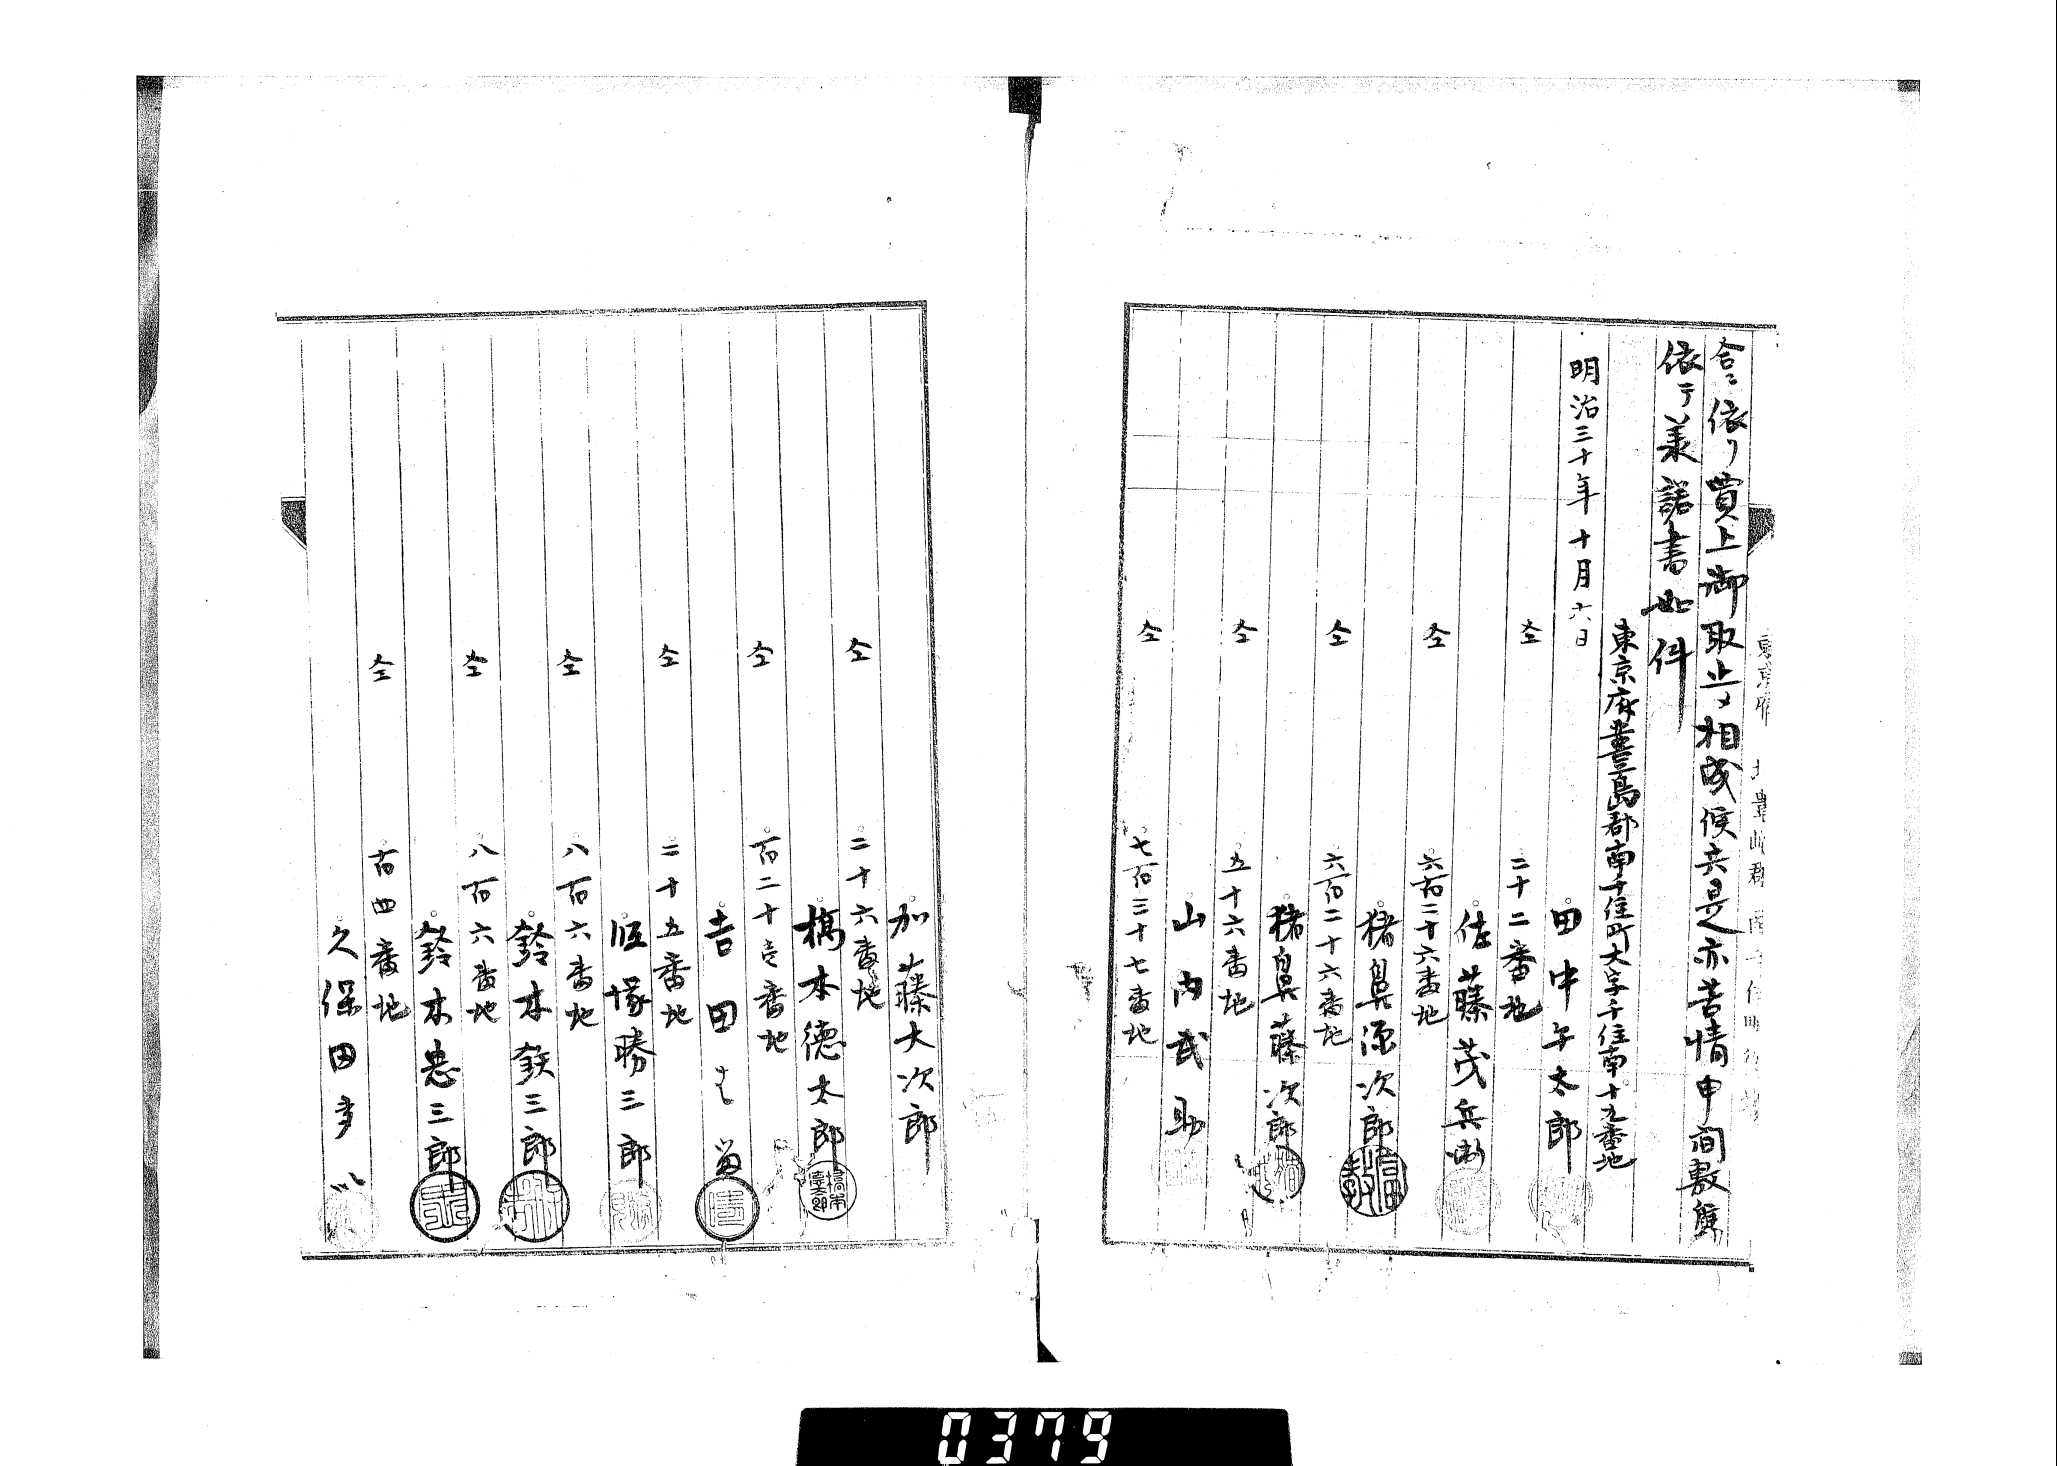 合ニ依リ買上御取止メ相成候共是亦苦情申間敷候
依テ美諾書如件
明治三十年十月六日
東京府豊島郡南千住町大字千住南十九番地
田中午太郎
仝 二十二番地
佐藤茂兵衛
仝 六百二十六番地
猪鼻源次郎
仝 六百二十六番地
猪鼻藤次郎
仝 五十六番地
山内武助
仝 七百三十七番地
加藤大次郎
仝 二十六番地
橋本德太郎
仝 百二十壱番地
吉田
仝 二十五番地
飯塚勝三郎
仝 八百六番地
鈴木鉄三郎
仝 八百六番地
鈴木忠三郎
仝 百四番地
久保田
0379